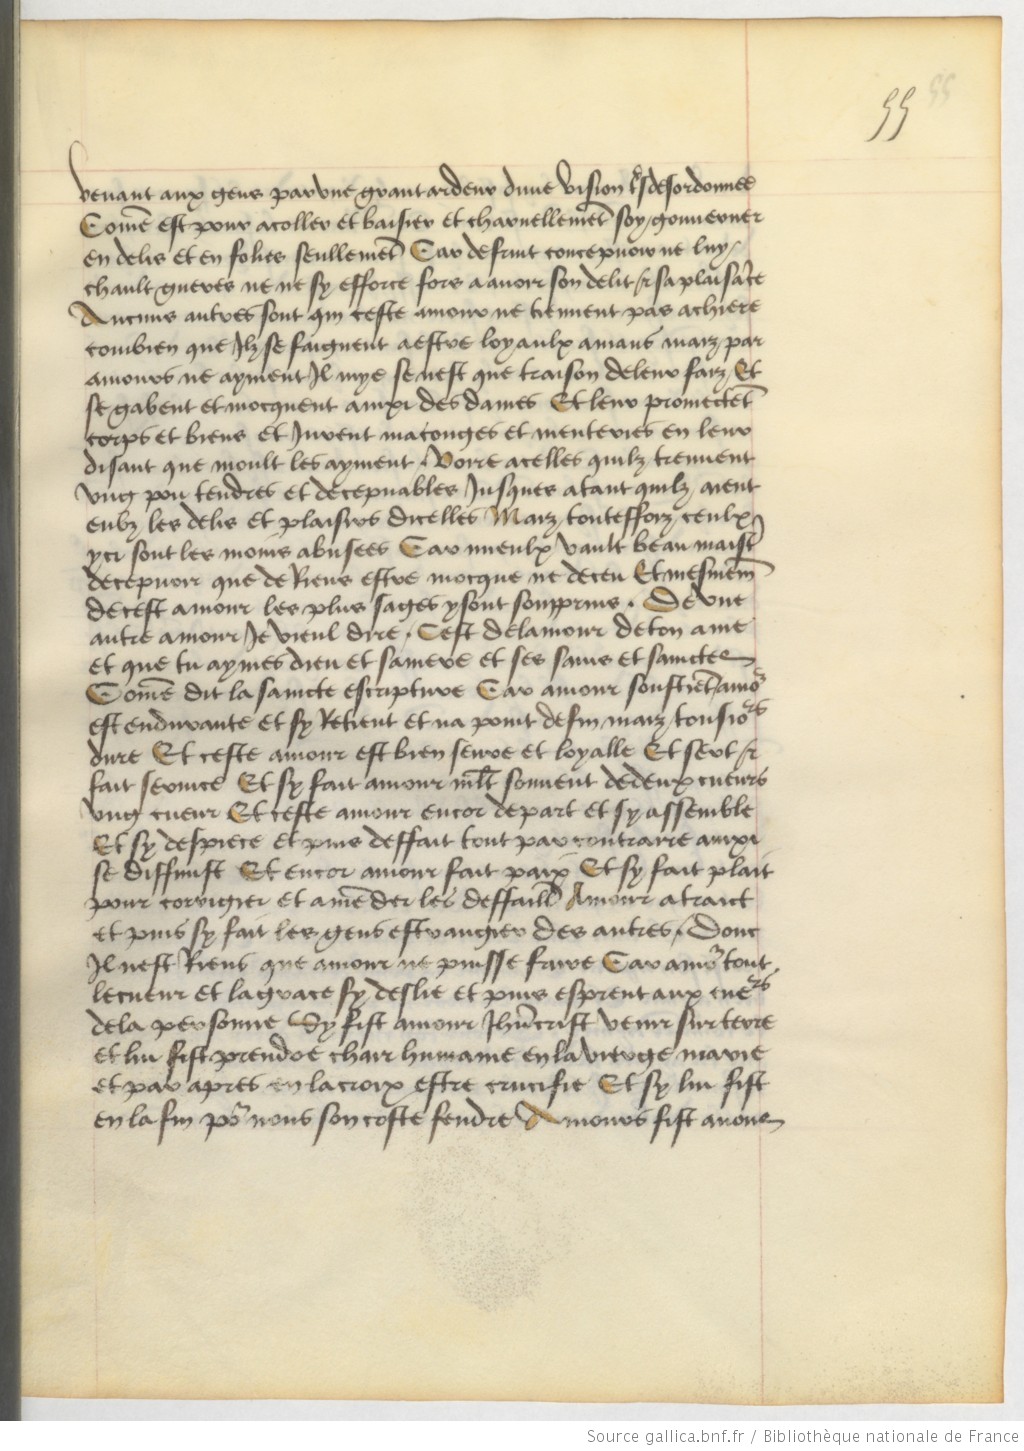 55 55
venant aux gens par une grant ardeur dune vision tresdesordonnee
Comē est pour acoller et baisier et charnellemēt soy gouverner
en delis et en folies seullemēt Car de fruit concepuoir ne luy
chault gueres ne ne sy efforce fors a auoir son delit et sa plaisāce
Aucuns autres sont qui ceste amour ne tiennent pas a chiere
combien que Ilz se faignent a estre loyaulx amans maiz par
amours ne ayment Il mye se nest que traison de leur faiz Et
se gabent et mocquent aussi des dames Et leur promectēt
corps et biens et Jurent maconges et menteries en leur
disant que moult les ayment . Voire a celles quilz treuuent
ung pou tendres et decepuables Jusques a tant quilz aient
eubz les delis et plaisirs dicelles Maiz touteffoiz ceulx
ycy sont les moins abusees Car mieulx vault beau maist
decepuoir que de Riens estre mocque ne deceu Et mesmem̄
de cest amour les plus sages y sont souppris . De une
autre amour Je vieul dire . Cest de lamour de ton ame
et que tu aymes dieu et sa mere et ses sains et sainctes
Comē dit la saincte escripture Car amour soustiēt amor
est endurante et sy Retient et na point de fin maiz tousiors
dure Et ceste amour est bien seure et loyalle Et sert et
fait seruice Et sy fait amour mlt souuent de deux cueurs
ung cueur Et ceste amour encor depart et sy assemble
Et sy despiece et puis deffait tout par contraire aussi
se diffinist Et encor amour fait paix Et sy fait plait
pour corrigier et amēder les deffaill Amour atraict
et puis sy fait les gens estrangier des autres . Donc
Il nest Riens que amour ne puisse faire Car amor tout
le cueur et la grace sy deslie et puis esprent aux cuers
de la personne Sy fist amour Jhūcrist venir sur terre
et lui fist prendre chair humaine en la vierge marie
et par apres en la croix estre crucifie Et sy lui fist
en la fin por nous son coste fendre Amours fist auoir
Source gallica.bnf.fr / Bibliothèque nationale de France